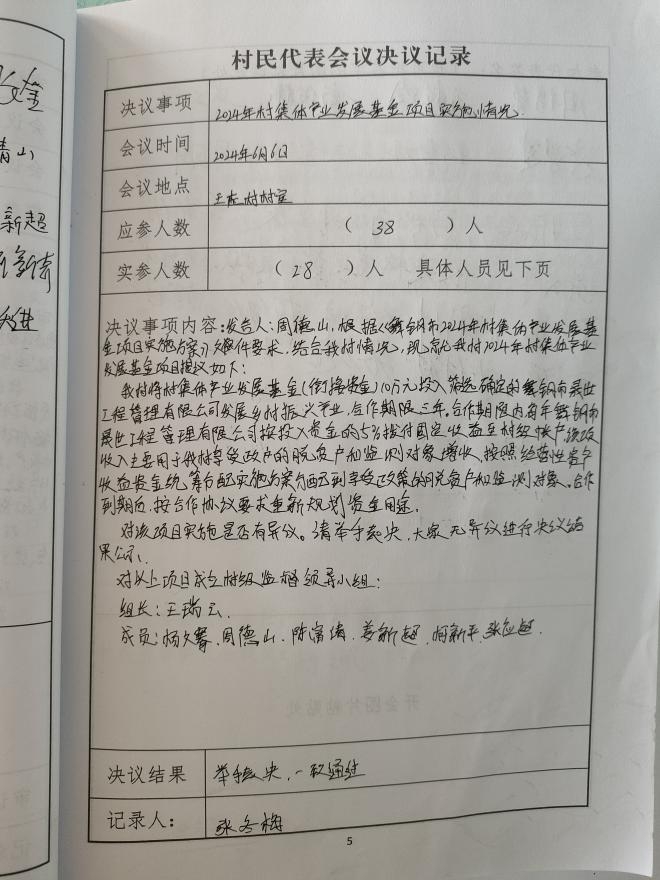 村民代表会议决议记录
决议事项 2024年村集体产业发展基金项目实施情况
会议时间 2024年6月6日
会议地点 王庄村村室
应参人数 （ 38 ）人
实参人数 （ 28 ）人 具体人员见下页
决议事项内容：发告人：周德山，根据《舞钢市2024年村集体产业发展基
金项目实施方案》文件要求，结合我村情况，现就我村2024年村集体产业
发展基金项目提议如下：
我村将村集体产业发展基金（衔接资金）10万元投入筛选确定的舞钢市晟世
工程管理有限公司发展乡村振兴产业，合作期限三年，合作期限内每年舞钢市
晟世工程管理有限公司按投入资金的5%拨付固定收益至村级帐户，该项
收入主要用于我村享受政户的脱贫户和监测对象增收，按照经营性资产
收益资金统筹分配实施方案分配到享受政策的脱贫户和监测对象。合作
到期后，按合作协议要求重新规划资金用途。
对该项目实施是否有异议。请举手表决，大家无异议进行决议结
果公示。
对以上项目成立村级监督领导小组：
组长：王瑞云
成员：杨文春、周德山、陈富清、姜新超、何新平、张
决议结果 举手表决，一致通过
记录人： 张冬梅
5
青山
新超